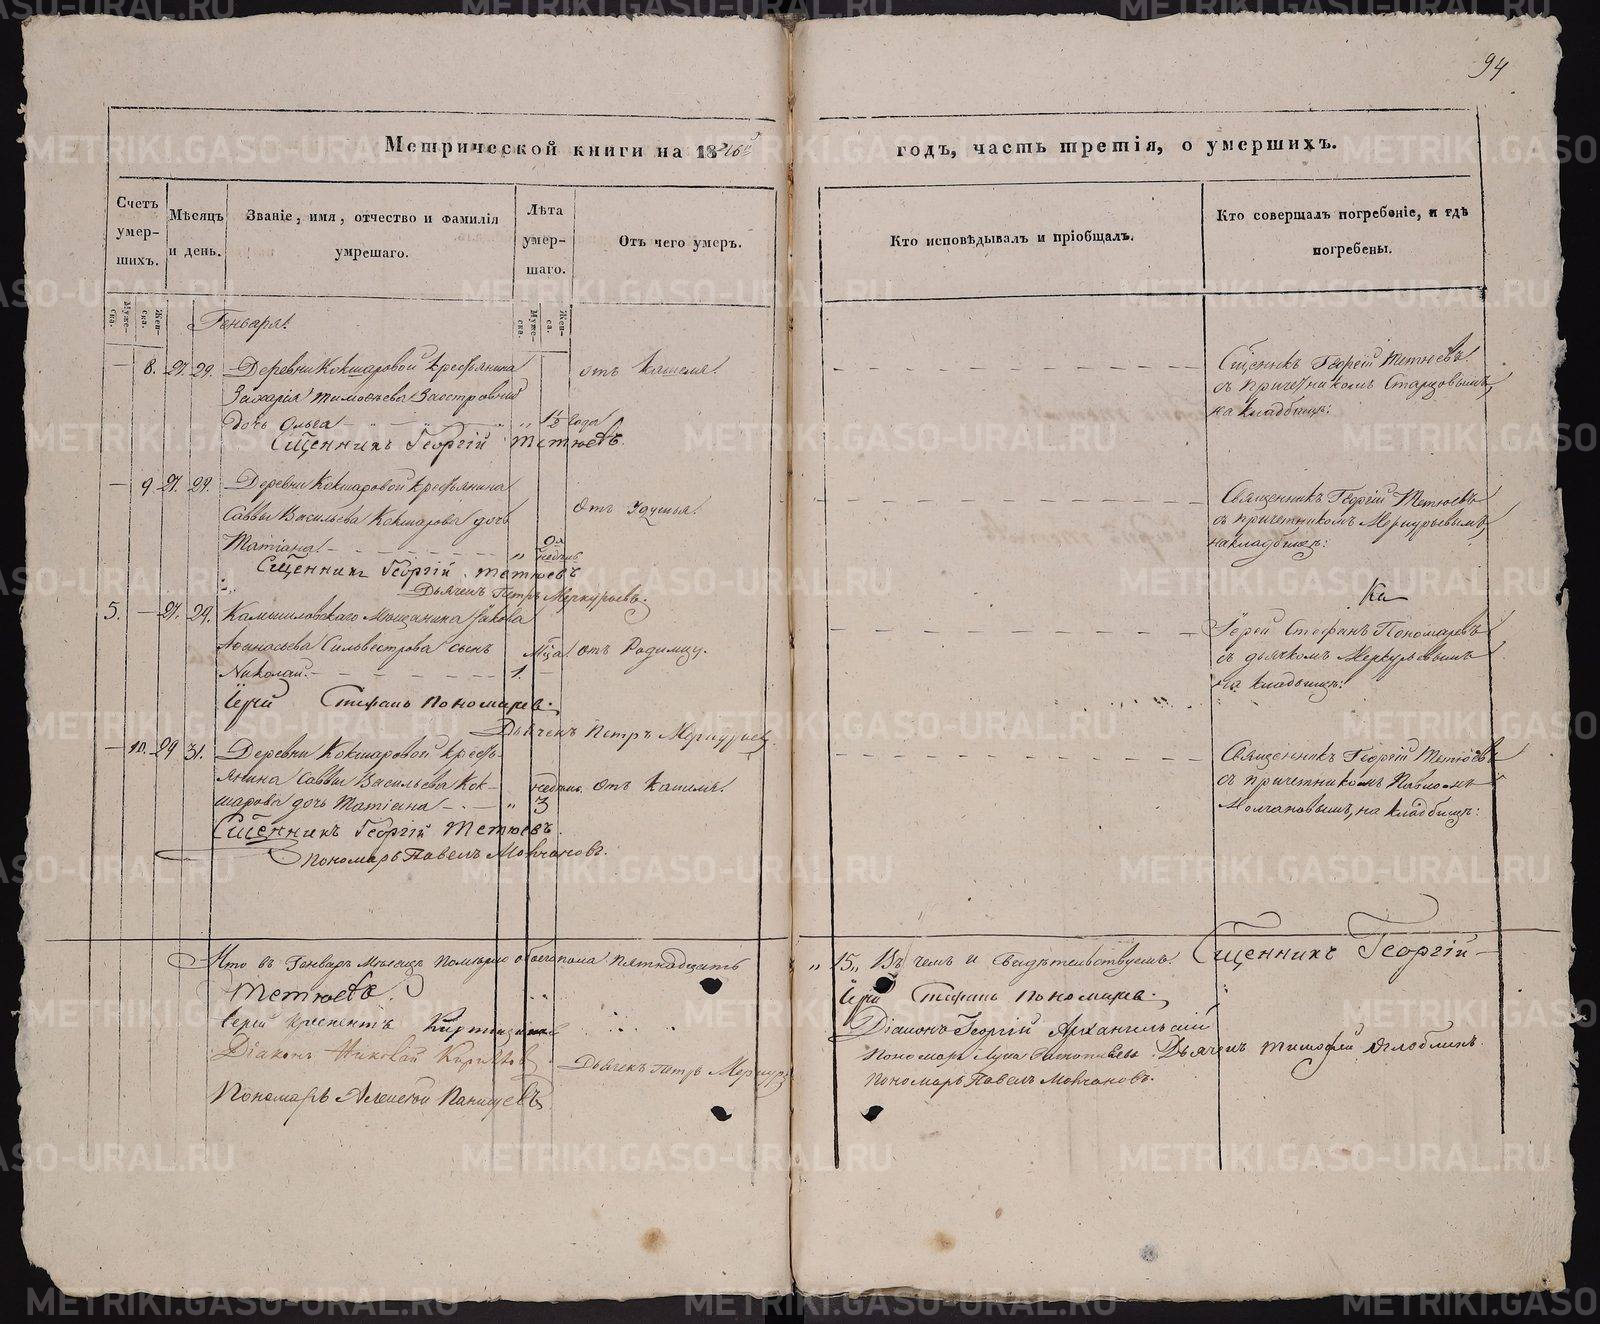 94
Метрической книги на 1846й годъ, часть третія, о умершихъ.
Счетъ умер-шихъ.
Мѣсяцъ и день.
Званіе, имя, отчество и фамилія умрешаго.
Лѣта умер-шаго.
Отъ чего умеръ.
Кто исповѣдывалъ и пріобщалъ.
Кто совершалъ погребеніе, и гдѣ погребены.
Муже-ска.
Жен-ска.
Муже-ска.
Жен-ска.
Генваря.
— 8. 27. 29. Деревни Кокшаровой крестьянина
Захарія Тимофѣева Заостровный
дочь Ольга „ 1½ года
отъ кашеля.
Сщенникъ Георгій Тетюевъ
съ причетникомъ Старцовымъ,
на кладбищѣ:
Сщенникъ Георгій Тетюевъ.
— 9. 27. 29. Деревни Кокшаровой крестьянина
Саввы Васильева Кокшарова дочь
Татіана „
недѣль
Отъ удушья.
Священникъ Георгій Тетюевъ
съ причетникомъ Меркурьевымъ,
на кладбищѣ:
Сщенникъ Георгій Тетюевъ
Дьячекъ Петръ Меркурьевъ.
5. — 27. 29. Камышловскаго мѣщанина Іакова
Афанасьева Сильвестрова сынъ
Николай. 1.
Мца.
отъ Родимцу.
Іерей Стефанъ Пономаревъ
съ дьячкомъ Меркурьевымъ
на кладбищѣ:
Іерей Стефанъ Пономаревъ.
Дьячекъ Петръ Меркурьевъ
— 10. 29 31. Деревни Кокшаровой кресть-
янина Саввы Васильева Кок-
шарова дочь Татіана „ 3
недѣль.
отъ кашля.
Священникъ Георгій Тетюевъ
съ причетникомъ Павломъ
Молчановымъ, на кладбищѣ:
Сщенникъ Георгій Тетюевъ.
Пономарь Павелъ Молчановъ.
Что въ Генварѣ мѣсяцѣ померло обоего пола пятнадцать „15„ Въ чемъ и свидѣтельствуемъ. Сщенникъ Георгій
Тетюевъ.
Іерей Стефанъ Пономаревъ.
Іерей
Діаконъ Георгій Архангельскій
Діаконъ Николай
Дьячекъ Петръ Меркурь
Пономарь Лука
Дьячекъ Тимофей
Пономарь Алексѣй
Пономарь Павелъ Молчановъ.
METRIKI.GASO-URAL.RU